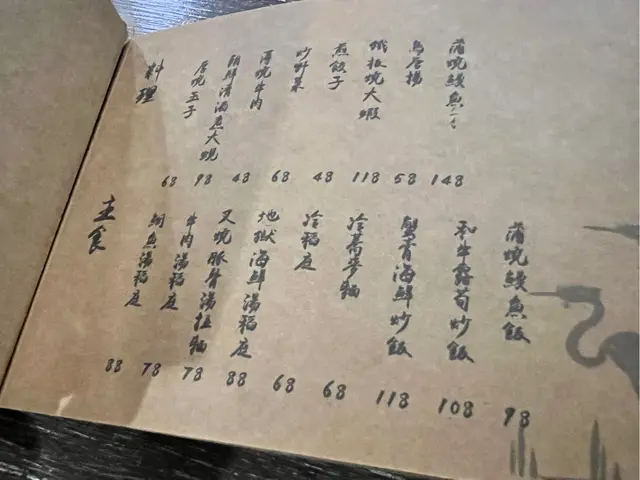 料理
厚燒玉子
68
清酒煮大蜆
98
薄燒牛肉
48
炒野菜
68
煎餃子
48
鐵板燒大蝦
118
鳥唐揚
58
蒲燒鰻魚
148
主食
鯛魚湯稻庭
88
牛肉湯稻庭
78
叉燒豚骨湯拉麵
78
地獄海鮮湯稻庭
88
冷稻庭
68
冷蕎麥麵
68
蟹膏海鮮炒飯
118
和牛露荀炒飯
108
蒲燒鰻魚飯
98